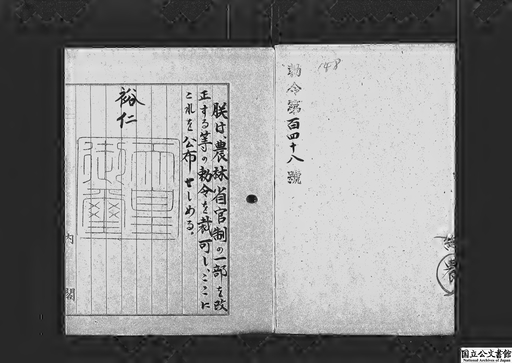 勅令第百四十八號
148
朕は、農林省官制の一部を改
正する等の勅令を裁可し、ここに
これを公布せしめる。
裕仁
天皇御璽
内閣
農
国立公文書館
National Archives of Japan